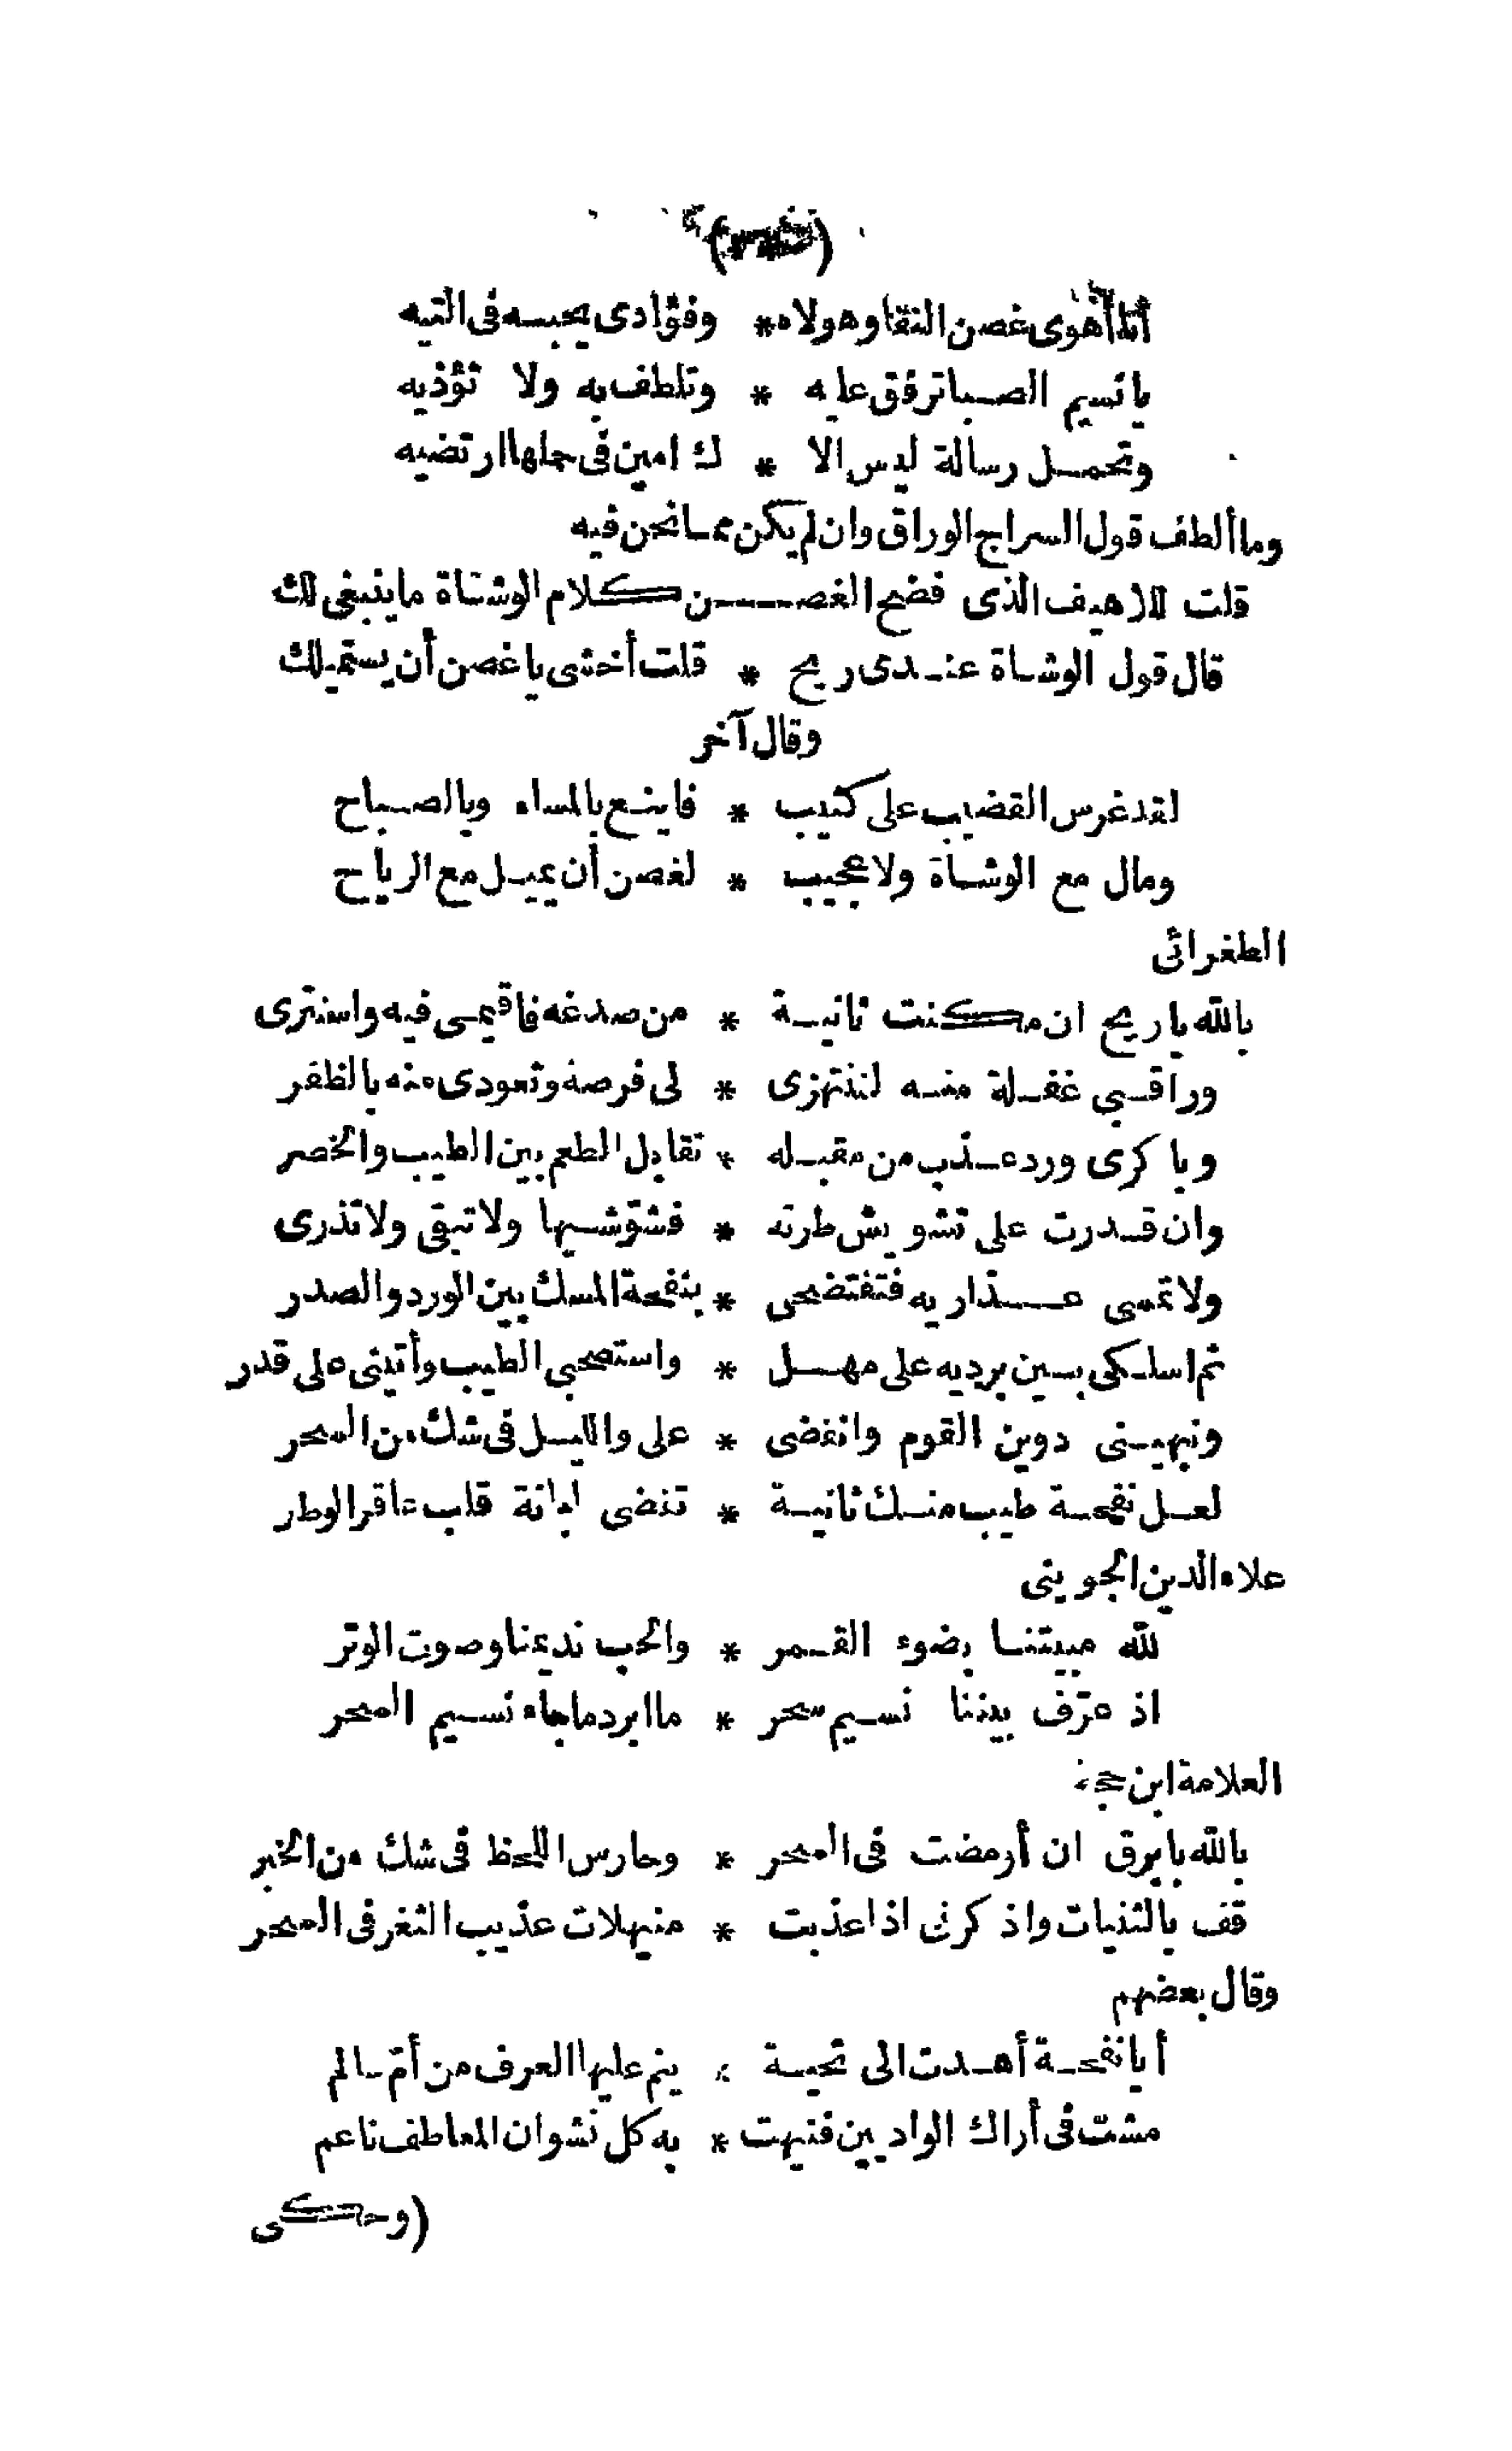 أنا أهوى غصن النقا وهو لاه * وفؤادى يحبسه فى التيه
يا نسيم الصبا ترفق عليه * وتلطف به ولا تؤذيه
وتحمل رسالة ليس الا * ك امين فى حملها ارتضيه
وما ألطف قول السراج الوراق وان لم يكن مما نحن فيه
قلت للاهيف الذى فضح الغصن كلام الوشاة ما ينبغى لك
قال قول الوشاة عندى ريح * قلت أخشى يا غصن أن يستميلك
وقال آخر
لقد غرس القضيب على كثيب * فاينع بالمساء وبالصباح
ومال مع الوشاة ولا عجيب * لغصن أن يميل مع الرياح
الطغرائى
بالله يا ريح ان مكنت ثانية * من صدغه فاقيمى فيه واستترى
وراقبى غفلة منه لتنتهزى * لى فرصة وتعودى منه بالظفر
وباكرى ورد عذب من مقبله * تقابل الطعم بين الطيب والخصر
وان قدرت على تشويش طرته * فشوّشيها ولا تبقى ولا تذرى
ولا تمسى عذاريه فتفتضحى * بنفحة المسك بين الورد والصدر
ثم اسلكى بين برديه على مهل * واستصحبى الطيب وأتينى على قدر
ونبهينى دوين القوم وانفضى * على والليل فى شك من السحر
لعل نفحة طيب منك ثانية * تقضى لبانة قلب عاقر الوطر
علاء الدين الجوينى
لله مبيتنا بضوء القمر * والحب نديمنا وصوت الوتر
اذ عرّف بيننا نسيم سحر * ما ابرد ما جاء نسيم السحر
العلامة ابن حجة
بالله يا برق ان أومضت فى السحر * وحارس اللحظ فى شك من الخبر
قف بالثنيات واذكرنى اذا عذبت * منهلات عذيب الثغر فى السحر
وقال بعضهم
أيا نفحة أهدت الى تحية * ينم عليها العرف من أمّ سالم
مشت فى أراك الواديين فنبهت * به كل نشوان المعاطف ناعم
(وحكى